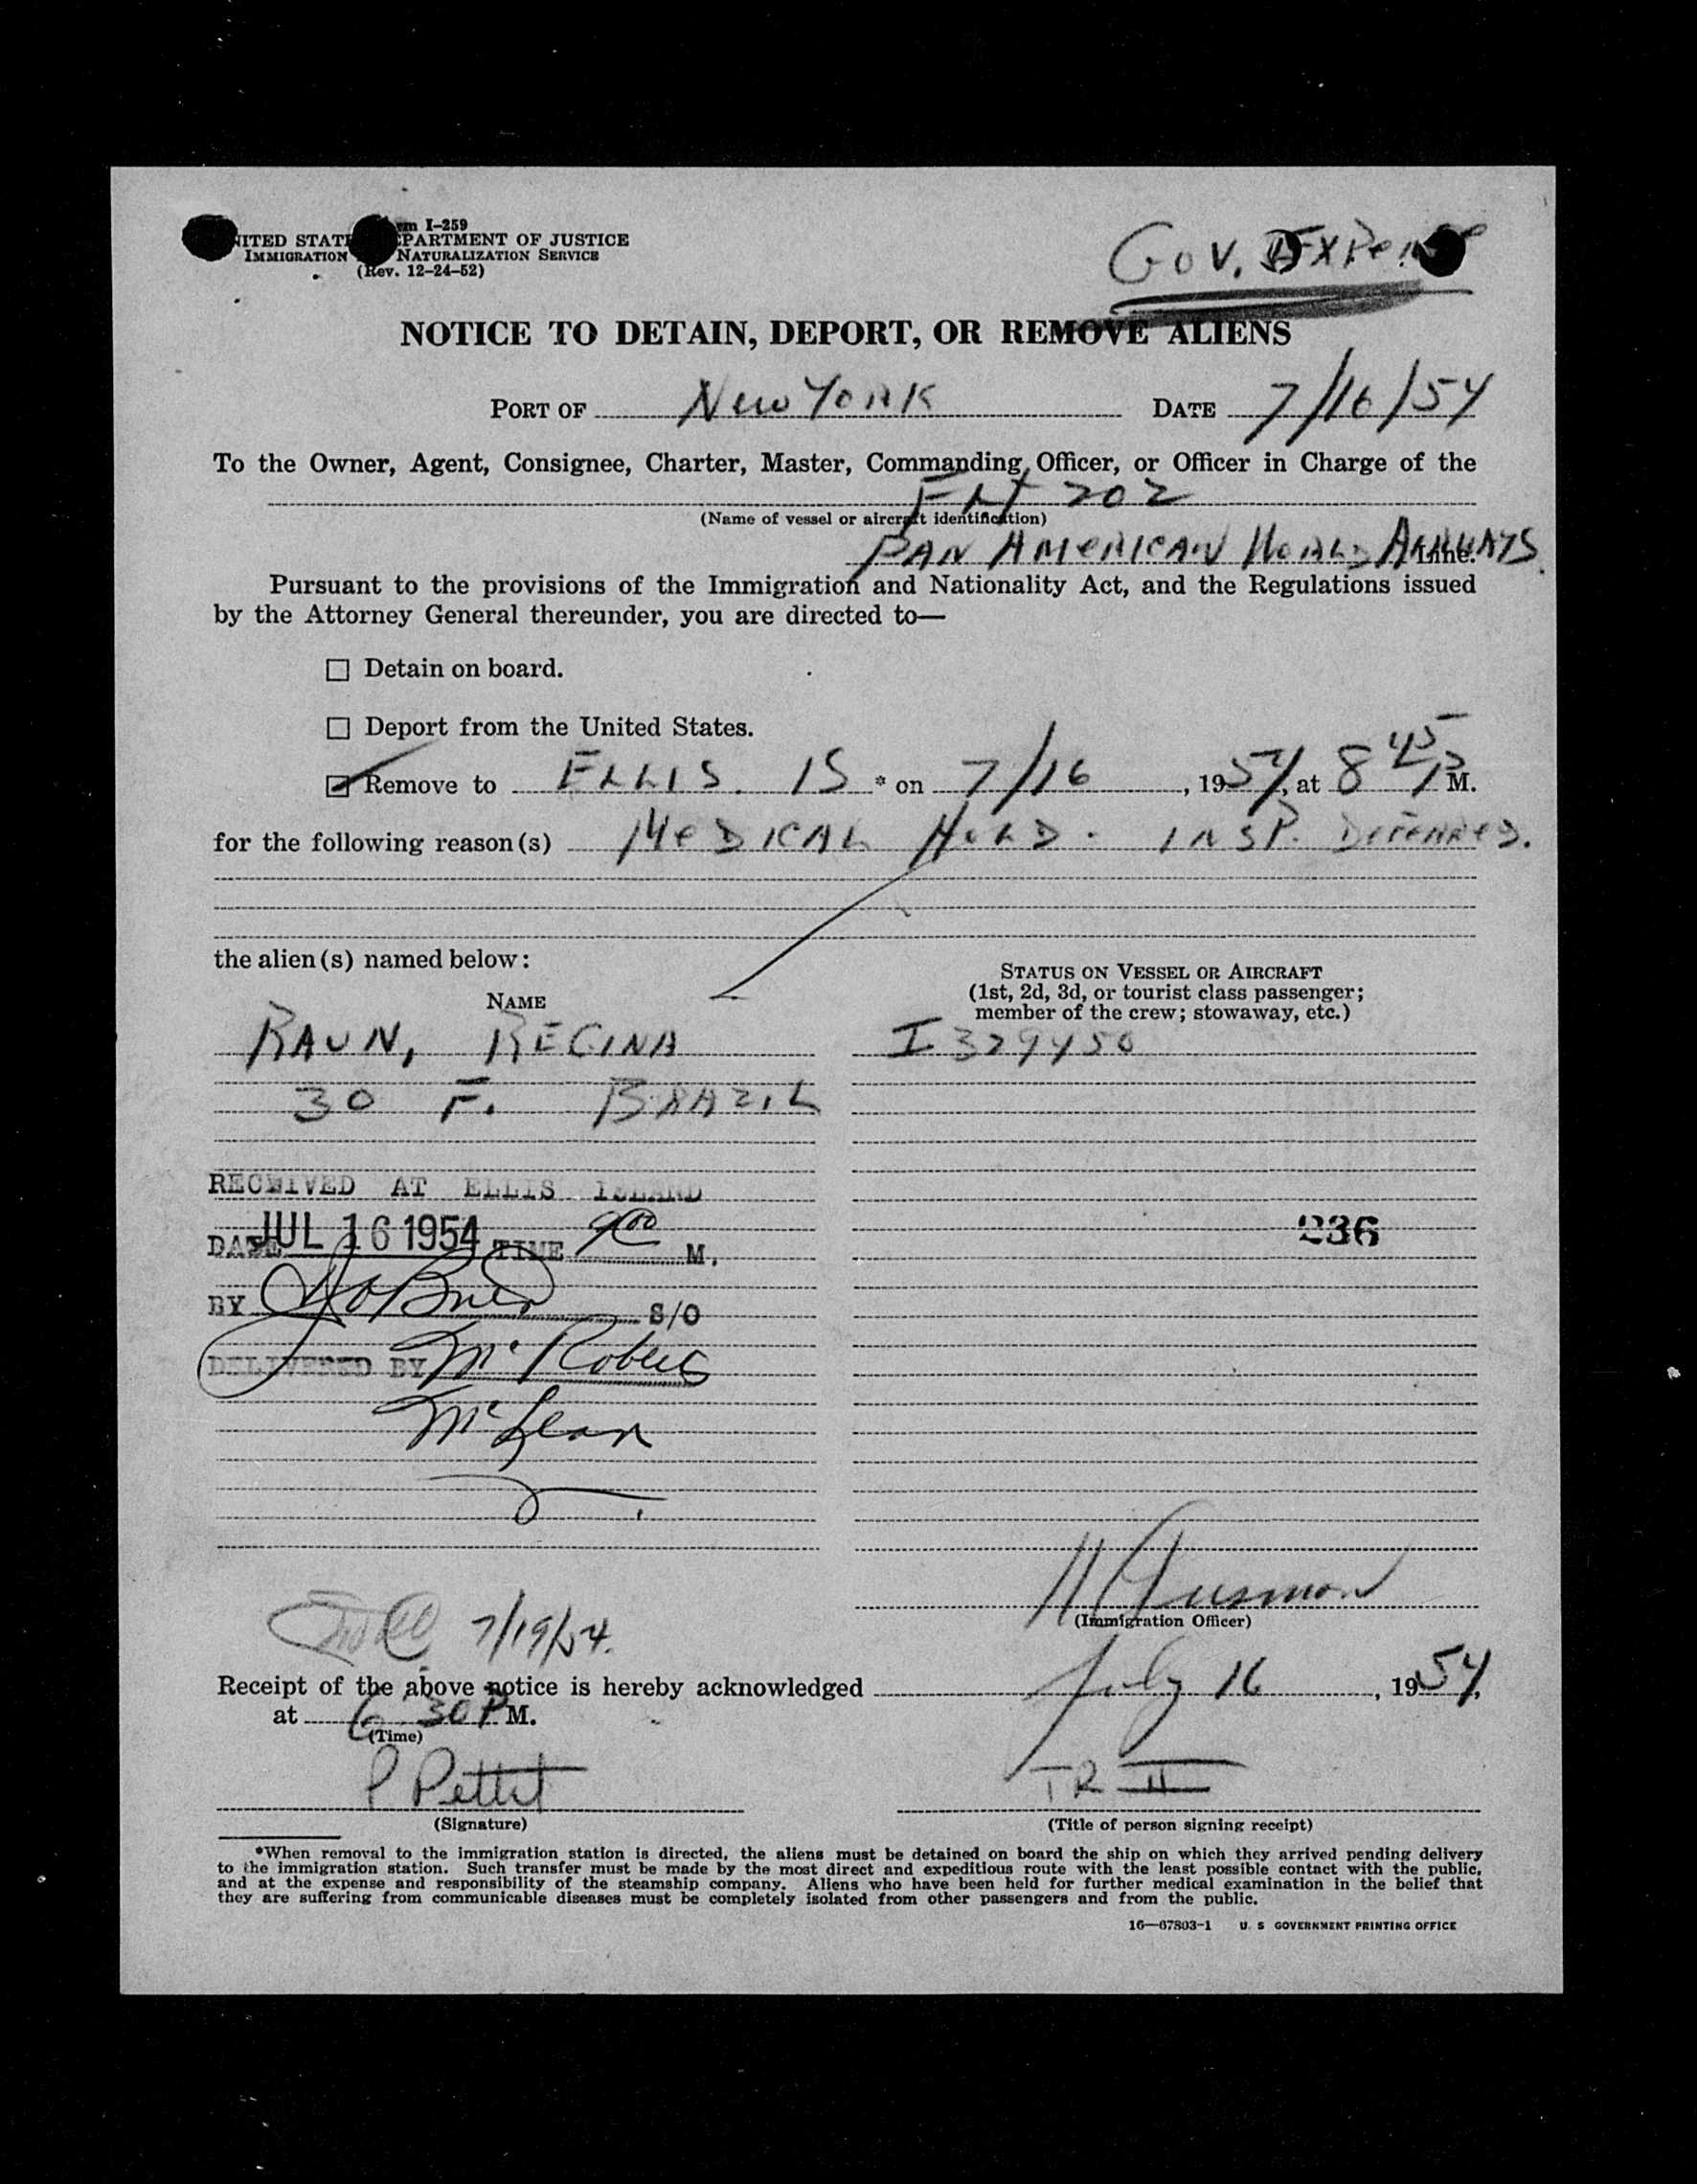 Form I-259
UNITED STATES DEPARTMENT OF JUSTICE
IMMIGRATION NATURALIZATION SERVICE
(Rev. 12-24-52)
Gov. Expense
NOTICE TO DETAIN, DEPORT, OR REMOVE ALIENS
PORT OF New York DATE 7/16/54
To the Owner, Agent, Consignee, Charter, Master, Commanding Officer, or Officer in Charge of the
FLT 202
(Name of vessel or aircraft identification)
PAN AMERICAN WORLD AIRWAYS Line.
Pursuant to the provisions of the Immigration and Nationality Act, and the Regulations issued
by the Attorney General thereunder, you are directed to—
Detain on board.
Deport from the United States.
Remove to ELLIS. IS * on 7/16, 1954, at 8 45 P M.
for the following reason(s) MEDICAL HOLD. INSP. DEFERRED.
the alien(s) named below:
NAME
STATUS ON VESSEL OR AIRCRAFT
(1st, 2d, 3d, or tourist class passenger;
member of the crew; stowaway, etc.)
RAUN, REGINA I 329450
30 F. BRAZIL
RECEIVED AT ELLIS ISLAND
DATE JUL 16 1954 TIME 9 00 M.
236
BY S/O
DELIVERED BY
McLean
7/19/54.
(Immigration Officer)
Receipt of the above notice is hereby acknowledged July 16, 1954,
at 6 30 P M.
(Time)
P Pettit TR II
(Signature) (Title of person signing receipt)
*When removal to the immigration station is directed, the aliens must be detained on board the ship on which they arrived pending delivery
to the immigration station. Such transfer must be made by the most direct and expeditious route with the least possible contact with the public,
and at the expense and responsibility of the steamship company. Aliens who have been held for further medical examination in the belief that
they are suffering from communicable diseases must be completely isolated from other passengers and from the public.
16—67803-1 U. S GOVERNMENT PRINTING OFFICE